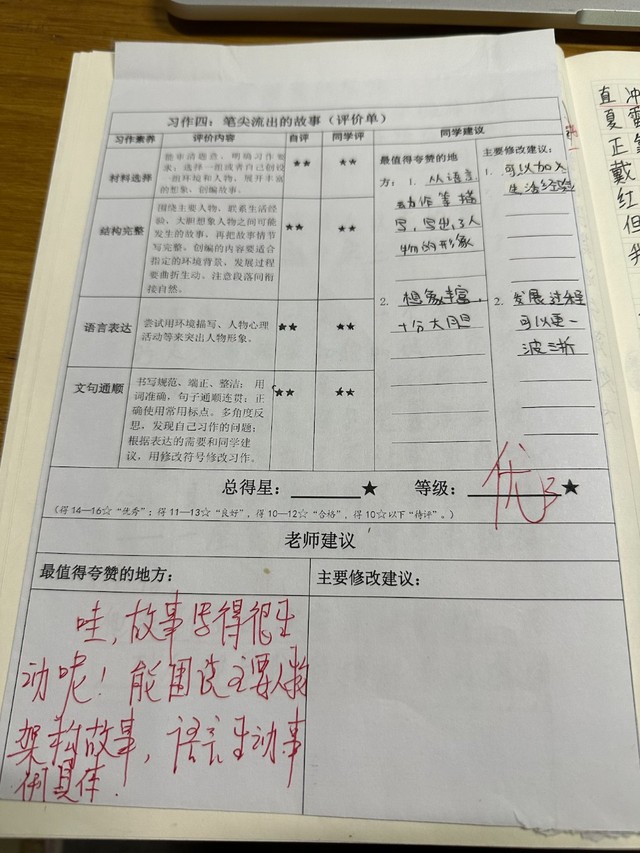 习作四：笔尖流出的故事（评价单）
习作素养 评价内容 自评 同学评 同学建议
材料选择
能审清题意，明确习作要
求，选择一组或者自己创设
一组环境和人物，展开丰富
的想象，创编故事。
★★ ★★
结构完整
围绕主要人物，联系生活经
验，大胆想象人物之间可能
发生的故事，再把故事情节
写完整，创编的内容要适合
指定的环境背景，发展过程
要曲折生动。注意段落间衔
接自然。
★★ ★★
语言表达
尝试用环境描写、人物心理
活动等来突出人物形象。
★★ ★★
文句通顺
书写规范、端正、整洁；用
词准确，句子通顺连贯；正
确使用常用标点。多角度反
思，发现自己习作的问题；
根据表达的需要和同学建
议，用修改符号修改习作。
★★ ★★
最值得夸赞的地
方：1. 从语言
动作等描
写，写出了人
物的形象
2. 想象丰富，
十分大胆
主要修改建议：
1. 可以加入
生活经验
2. 发展过程
可以更一
波三折
总得星：______★ 等级：优★
（得14—16☆“优秀”；得11—13☆“良好”，得10—12☆“合格”，得10☆以下“待评”。）
老师建议
最值得夸赞的地方：
哇，故事写得很生
动呢！能围绕主要人物
架构故事，语言生动事
例具体.
主要修改建议：
直冲
夏
正
戴
红
但